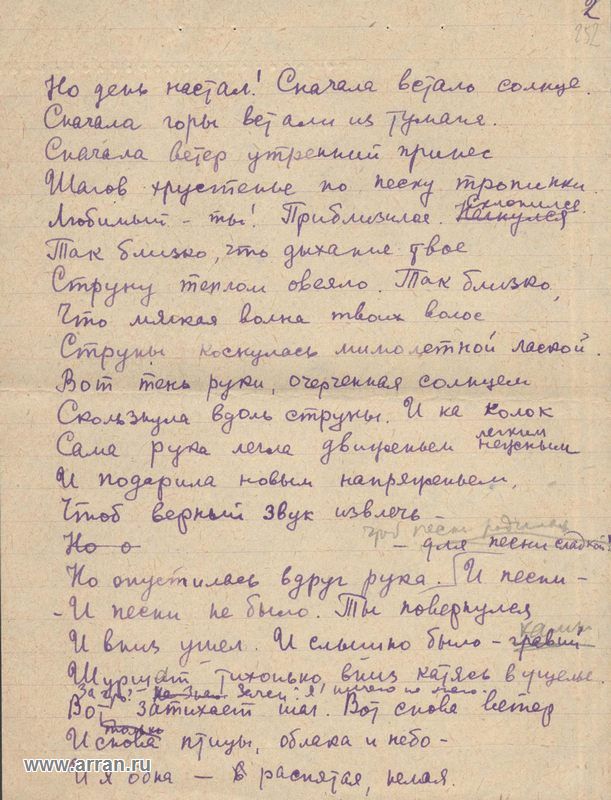 2
252
Но день настал! Сначала встало солнце.
Сначала горы встали из тумана.
Сначала ветер утренний принес
Шагов хрустенье по песку тропинки.
Склонился
Любимый – ты! Приблизился. Нагнулся
Так близко, что дыхание твое
Струну теплом овеяло. Так близко,
Что мягкая волна твоих волос
Струны коснулась мимолетной лаской.
Вот тень руки, очерченная солнцем
Скользнула вдоль струны. И на колок
легким
Сама рука легла движеньем неусным
И подарила новым напряженьем,
Чтоб верный звук извлечь
чтоб песня родилась
Но о – для песни сладкой!
Но опустилась вдруг рука. И песни –
– И песни не было. Ты повернулся
камни
И вниз ушел. И слышно было – гравий
Шуршат тихонько, вниз катясь в ущелье.
Зачем? Не знаю зачем. Я ничего не
Вот затихает шаг. Вот снова ветер
только
И снова птицы, облака и небо –
И я одна – распятая, немая.
www.arran.ru